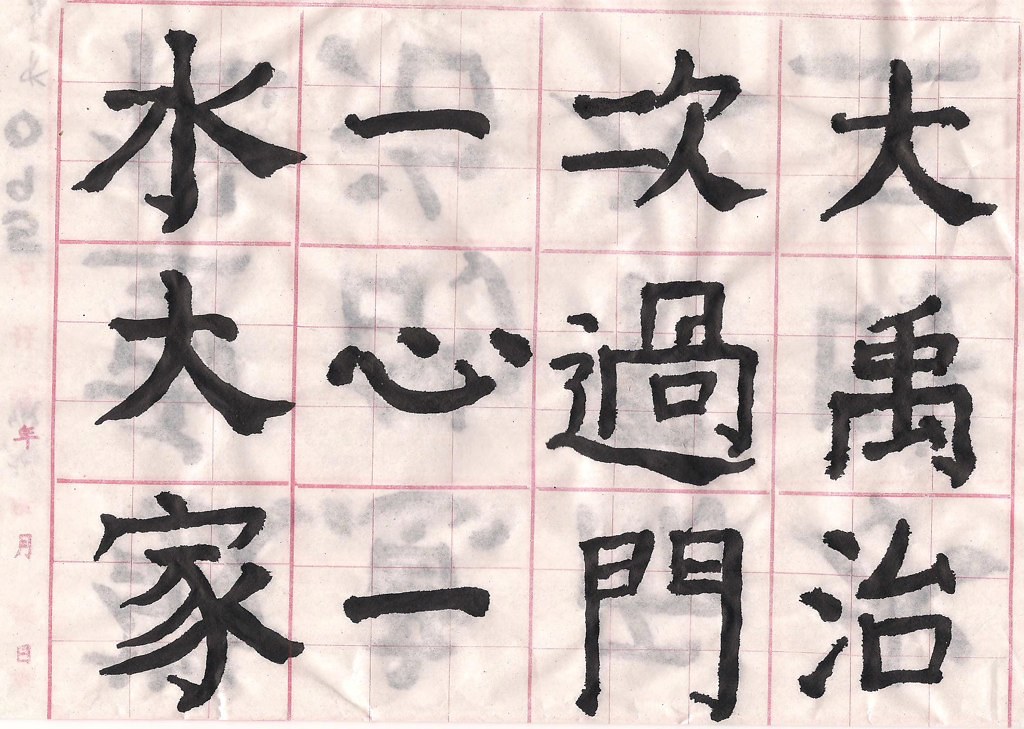 大禹治
次過門
一心一
水大家
年月日